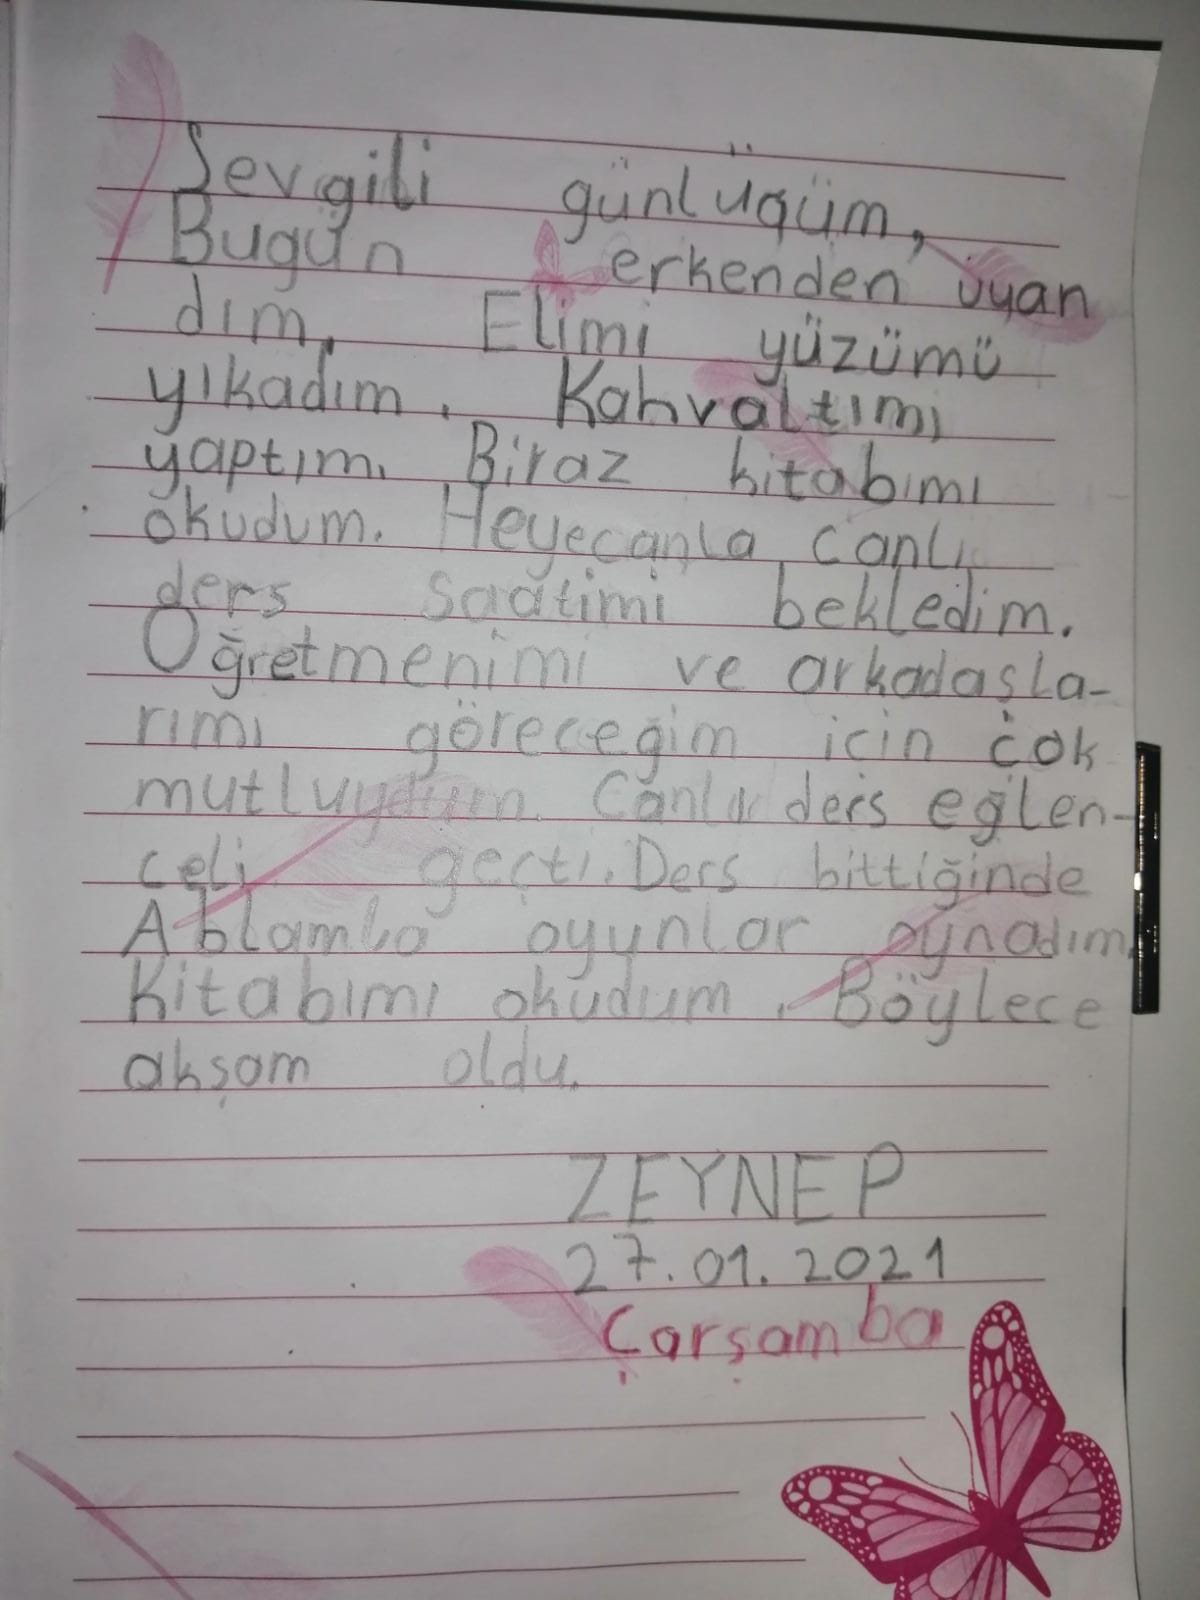 Sevgili günlüğüm,
Bugün erkenden üyan
dım. Elimi yüzümü
yıkadım. Kahvaltımı
yaptım. Biraz kitabımı
okudum. Heyecanla canlı
ders saatimi bekledim.
Oğretmenimi ve arkadaşla-
rımı göreceğim için çok
mutluydum. Canlı ders eğlen-
celi geçti. Ders bittiğinde
Ablamla oyunlar oynadım.
Kitabımı okudum. Böylece
akşam oldu.
ZEYNEP
27.01.2021
Çarşamba